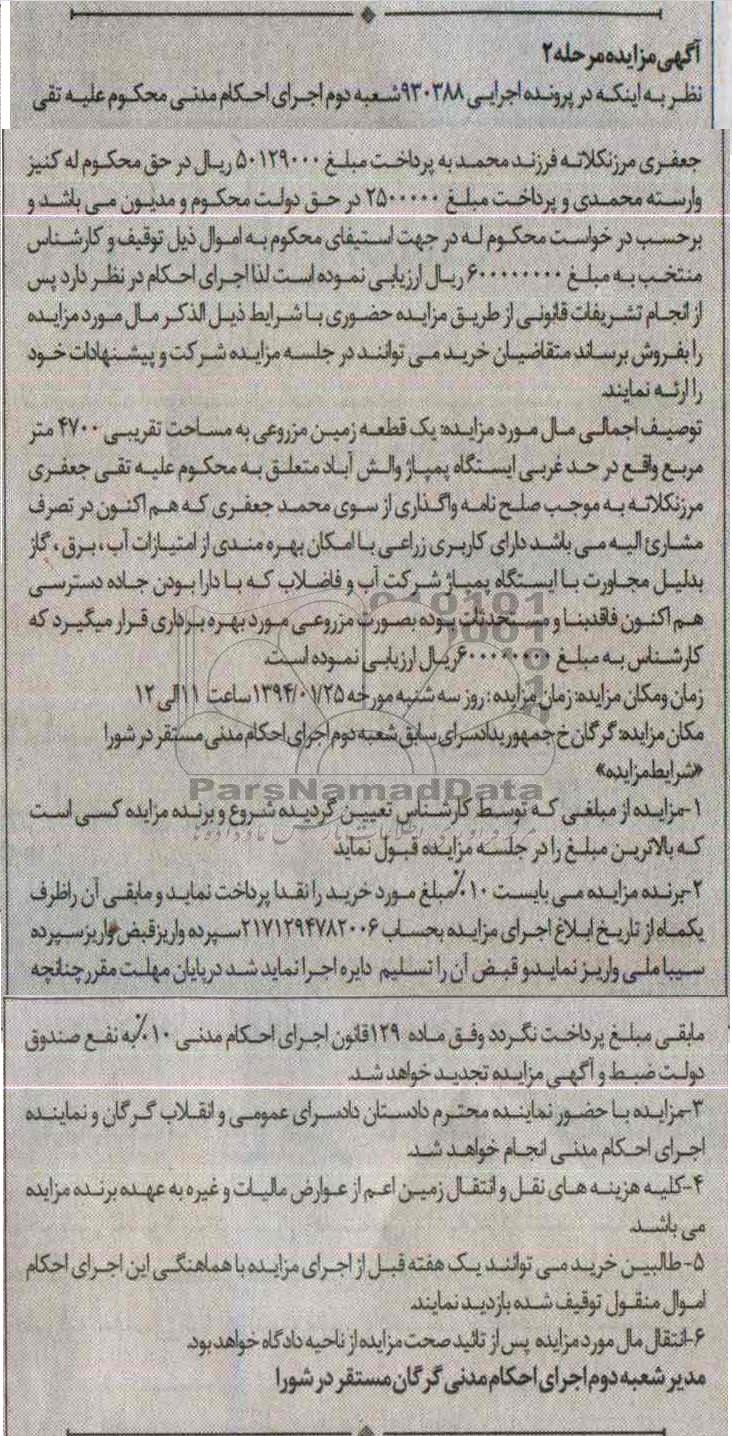 آگهی مزایده مرحله ۲
نظر به اینکه در پرونده اجرایی ۹۳۰۳۸۸ شعبه دوم اجرای احکام مدنی محکوم علیه تقی
جعفری مرزنکلاته فرزند محمد به پرداخت مبلغ ۵۰۱۲۹۰۰۰ ریال در حق محکوم له کنیز
وارسته محمدی و پرداخت مبلغ ۲۵۰۰۰۰۰ در حق دولت محکوم و مدیون می باشد و
برحسب در خواست محکوم له در جهت استیفای محکوم به اموال ذیل توقیف و کارشناس
منتخب به مبلغ ۶۰۰۰۰۰۰۰۰ ریال ارزیابی نموده است لذا اجرای احکام در نظر دارد پس
از انجام تشریفات قانونی از طریق مزایده حضوری با شرایط ذیل الذکر مال مورد مزایده
را بفروش برساند متقاضیان خرید می توانند در جلسه مزایده شرکت و پیشنهادات خود
را ارئه نمایند.
توصیف اجمالی مال مورد مزایده: یک قطعه زمین مزروعی به مساحت تقریبی ۴۷۰۰ متر
مربع واقع در حد غربی ایستگاه پمپاژ والش آباد متعلق به محکوم علیه تقی جعفری
مرزنکلاته به موجب صلح نامه واگذاری از سوی محمد جعفری که هم اکنون در تصرف
مشارئ الیه می باشد دارای کاربری زراعی با امکان بهره مندی از امتیازات آب ، برق ، گاز
بدلیل مجاورت با ایستگاه پمپاژ شرکت آب و فاضلاب که با دارا بودن جاده دسترسی
هم اکنون فاقدبنا و مستحدثات بوده بصورت مزروعی مورد بهره برداری قرار میگیرد که
کارشناس به مبلغ ۶۰۰۰۰۰۰۰۰ریال ارزیابی نموده است.
زمان ومکان مزایده: زمان مزایده : روز سه شنبه مورخه ۱۳۹۴/۰۱/۲۵ ساعت ۱۱الی ۱۲
مکان مزایده: گرگان خ جمهوریدادسرای سابق شعبه دوم اجرای احکام مدنی مستقر در شورا
«شرایط مزایده»
ParsNamadData
۱-مزایده از مبلغی که توسط کارشناس تعیین گردیده شروع و برنده مزایده کسی است
که بالاترین مبلغ را در جلسه مزایده قبول نماید
۲-برنده مزایده می بایست ۱۰٪مبلغ مورد خرید را نقدا پرداخت نماید و مابقی آن راظرف
یکماه از تاریخ ابلاغ اجرای مزایده بحساب ۲۱۷۱۲۹۴۷۸۲۰۰۶سپرده واریزقبض واریزسپرده
سیبا ملی واریز نمایدو قبض آن را تسلیم دایره اجرا نماید شد درپایان مهلت مقررچنانچه
مابقی مبلغ پرداخت نگردد وفق ماده ۱۲۹قانون اجرای احکام مدنی ۱۰٪به نفع صندوق
دولت ضبط و آگهی مزایده تجدید خواهد شد.
۳-مزایده با حضور نماینده محترم دادستان دادسرای عمومی و انقلاب گرگان و نماینده
اجرای احکام مدنی انجام خواهد شد.
۴-کلیه هزینه های نقل و انتقال زمین اعم از عوارض مالیات و غیره به عهده برنده مزایده
می باشد.
۵- طالبین خرید می توانند یک هفته قبل از اجرای مزایده با هماهنگی این اجرای احکام
اموال منقول توقیف شده بازدید نمایند.
۶-انتقال مال مورد مزایده پس از تائید صحت مزایده از ناحیه دادگاه خواهد بود.
مدیر شعبه دوم اجرای احکام مدنی گرگان مستقر در شورا